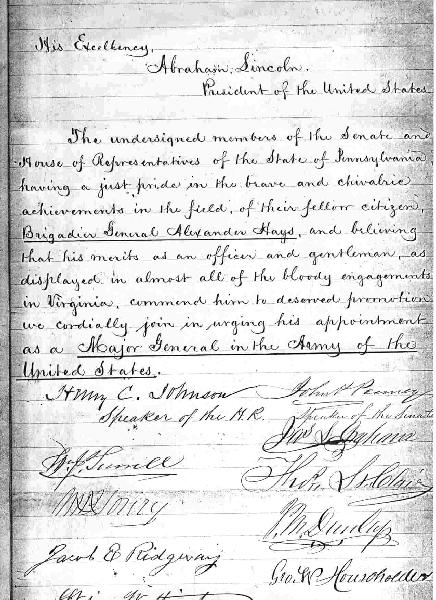 His Excellency,
Abraham Lincoln.
President of the United States
The undersigned members of the Senate and
House of Representatives of the State of Pennsylvania
having a just pride in the brave and chivalric
achievements in the field, of their fellow citizen,
Brigadier General Alexander Hays, and believing
that his merits as an officer and gentleman, as
displayed in almost all of the bloody engagements
in Virginia, commend him to deserved promotion
we cordially join in urging his appointment
as a Major General in the Army of the
United States.
Henry C. Johnson
Speaker of the H.R.
John P. Penney
Speaker of the Senate
Thos. St. Clair
Jacob E Ridgway
Geo. W Householder